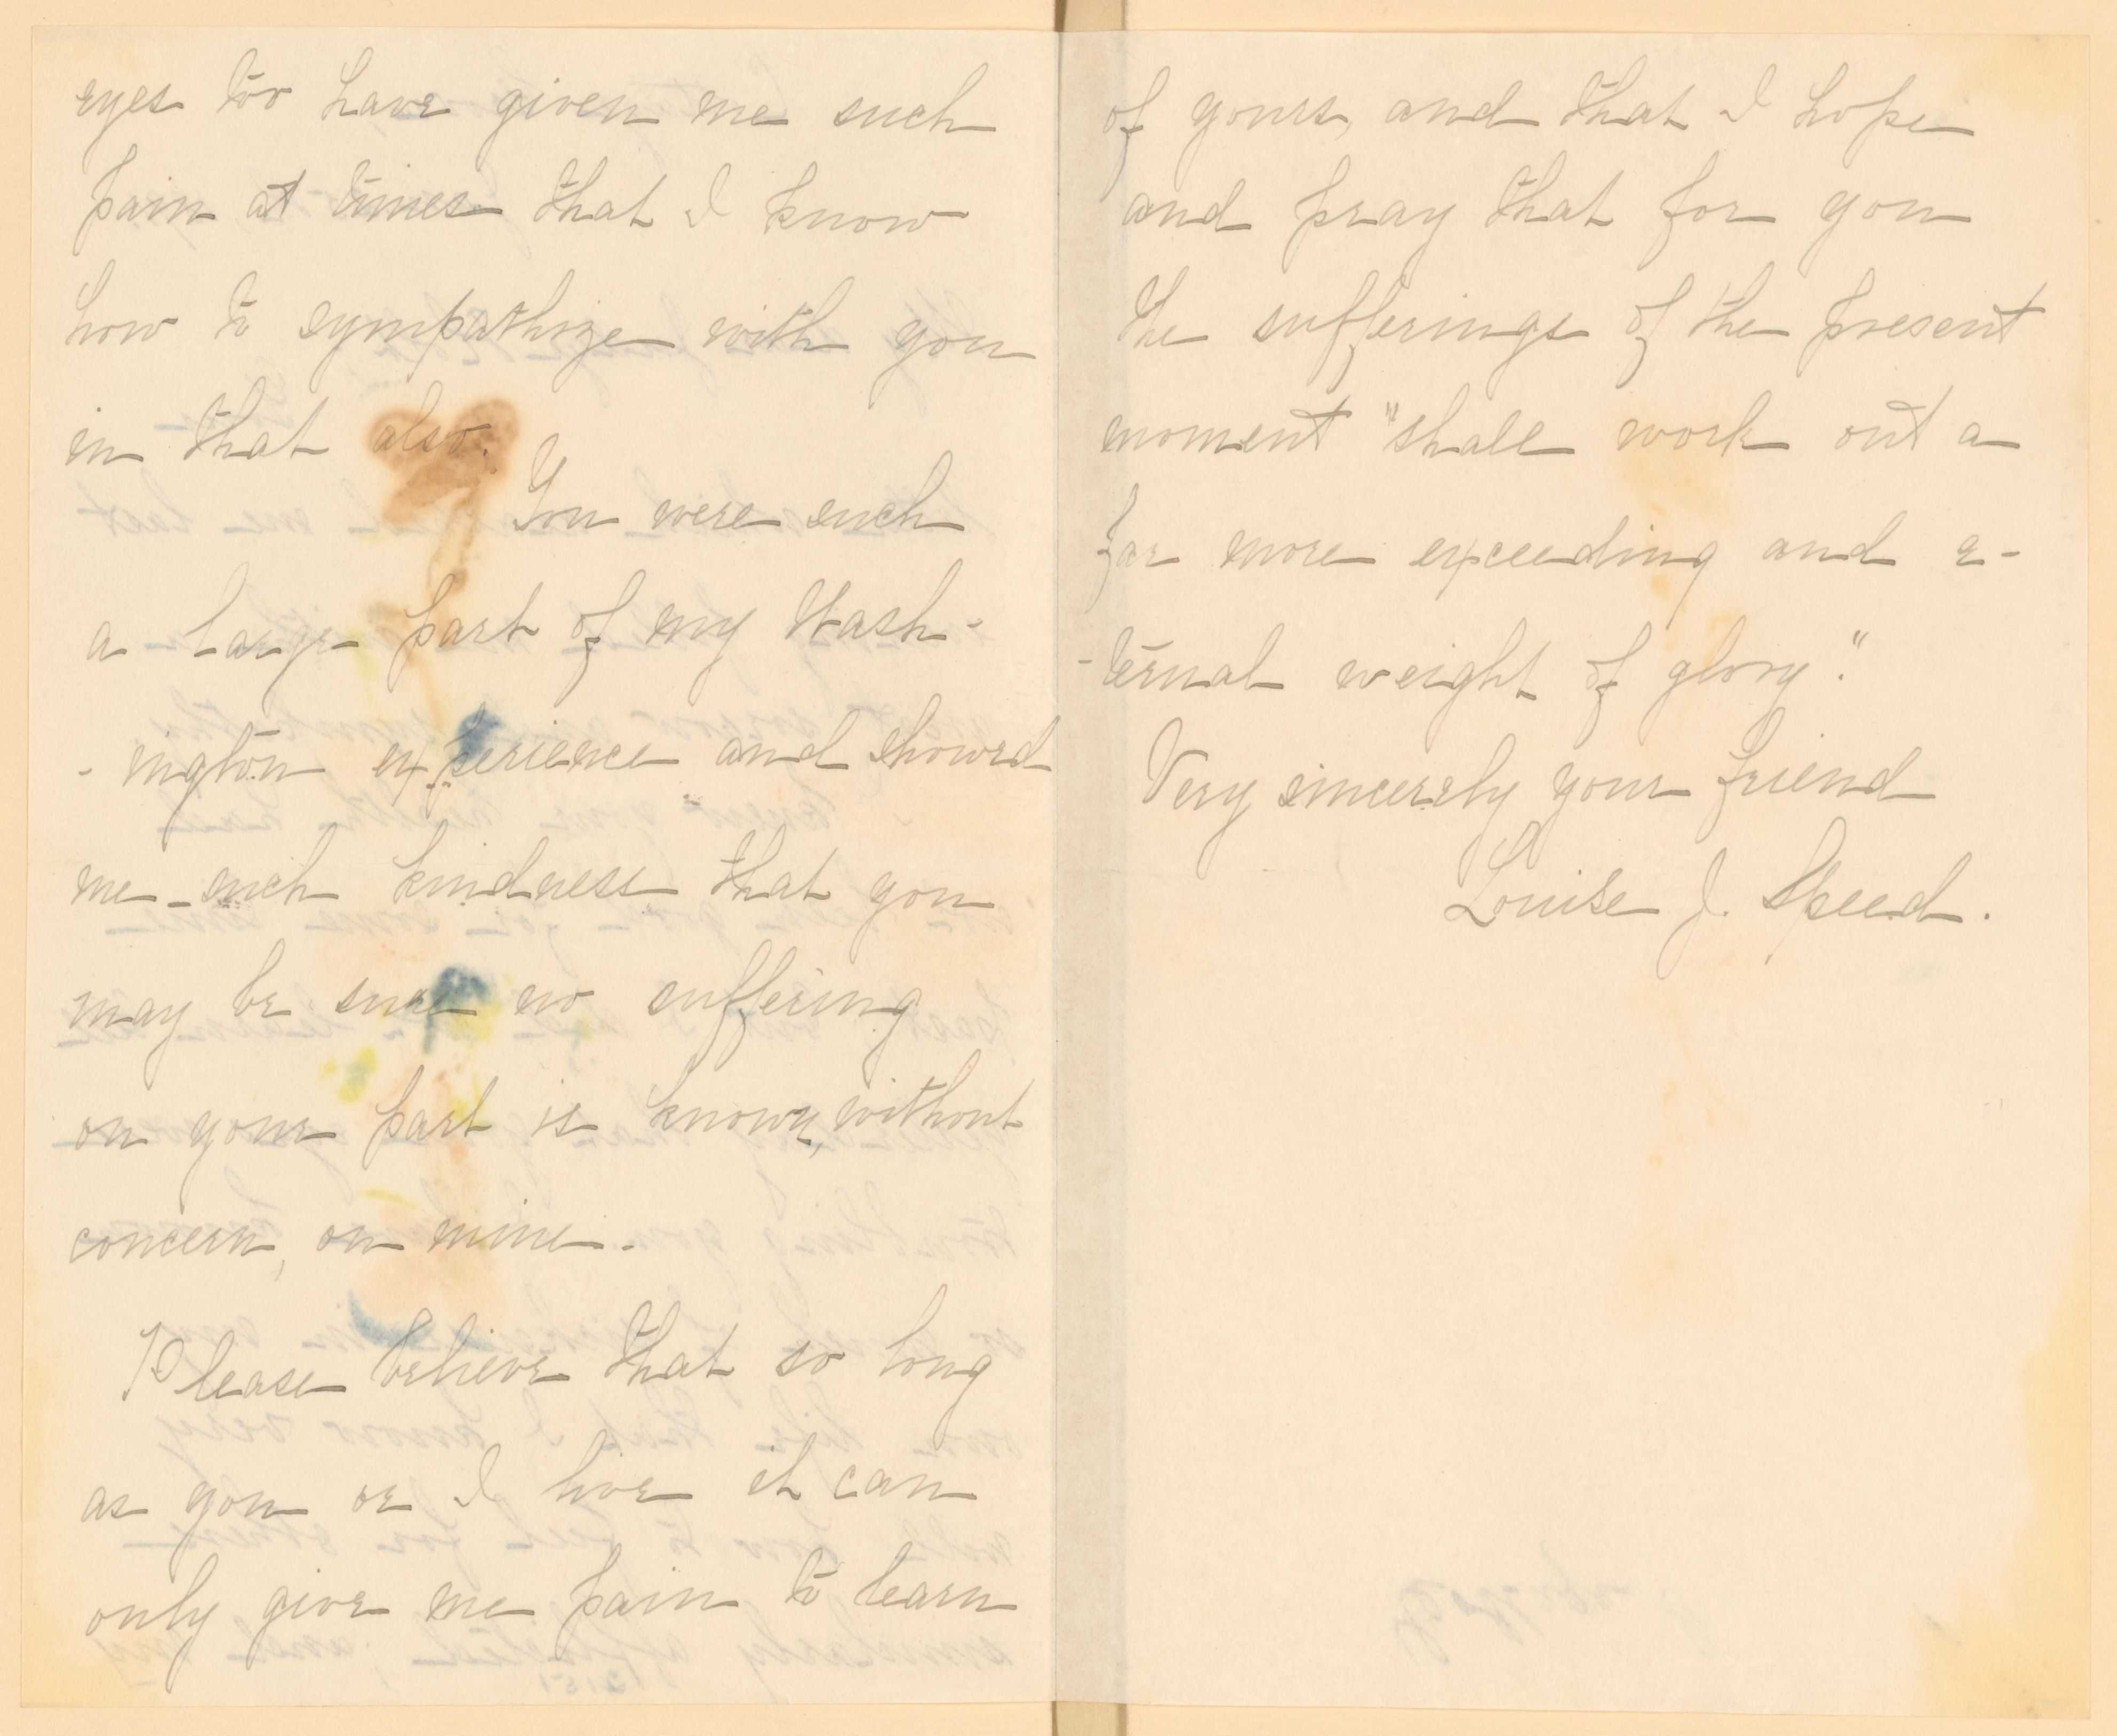 eyes too have given me such
pain at times that I know
how to sympathize with you
in that also.
You were such
a large part of my Wash-
-ington experience and showed
me such kindness that you
may be sure no suffering
on your part is known, without
concern, on mine.
Please believe that so long
as you or I live it can
only give me pain to learn
of yours, and that I hope
and pray that for you
the sufferings of the present
moment "shall work out a
far more exceeding and e-
-ternal weight of glory."
Very sincerely your friend
Louise J. Speed.